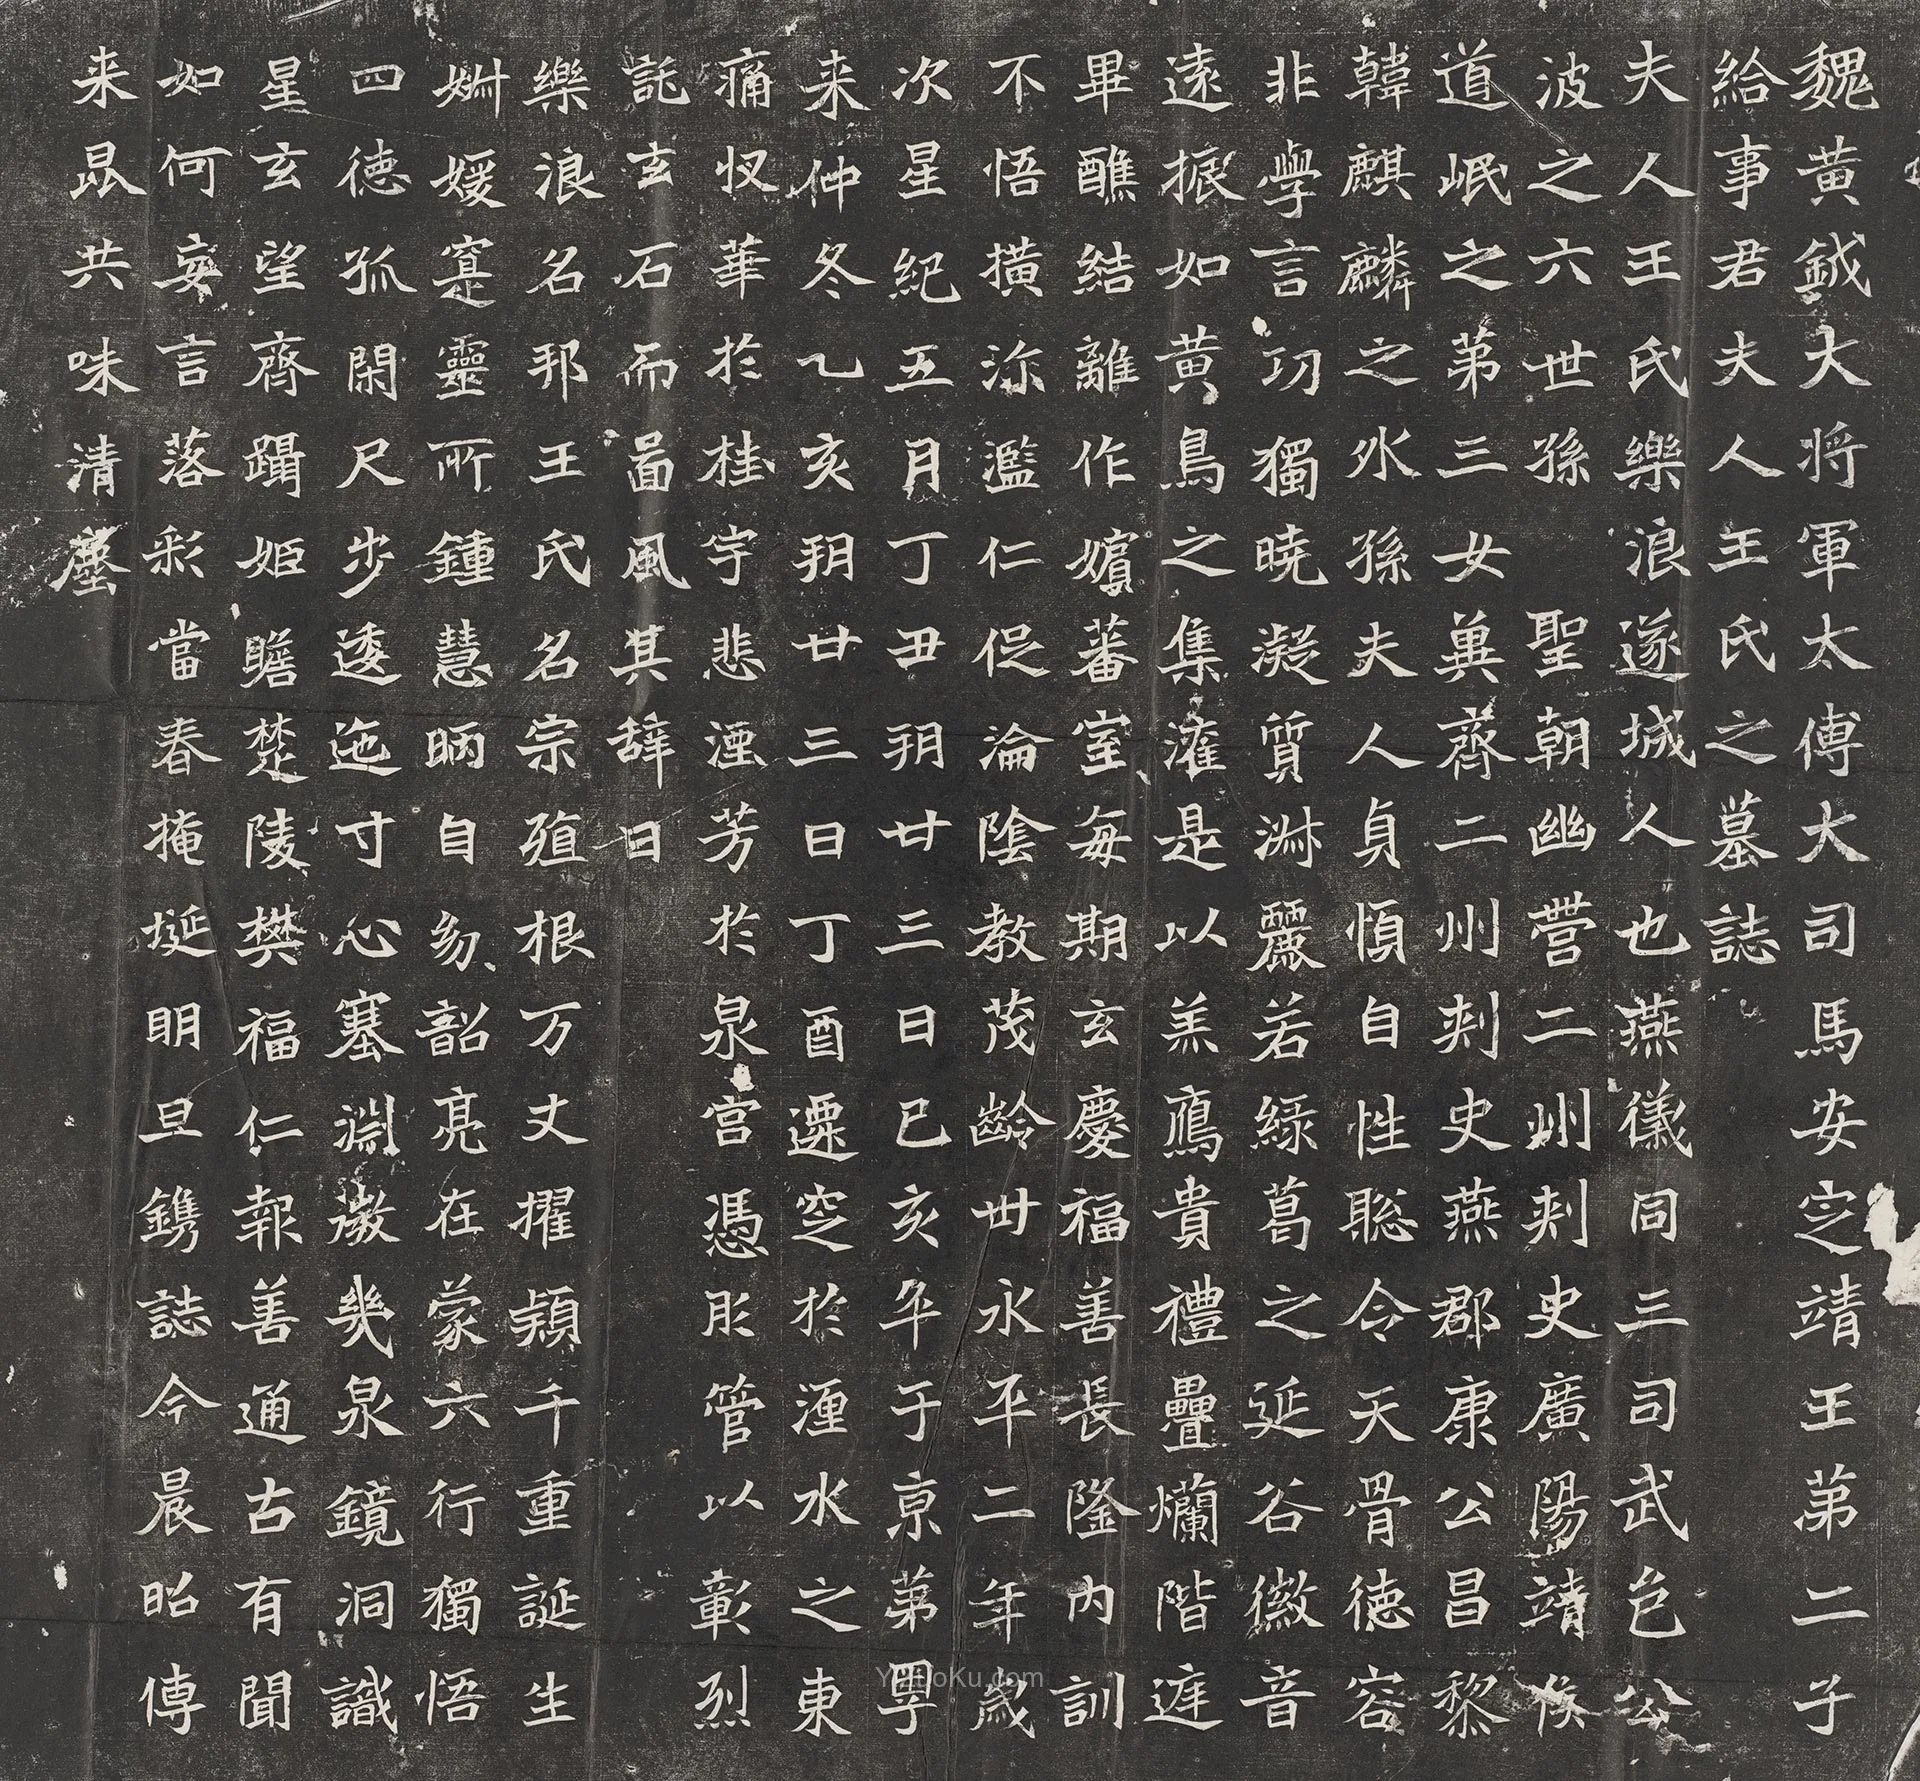 魏黄鉞大将軍太傅大司馬安定靖王第二子
給事君夫人王氏之墓誌
夫人王氏樂浪遂城人也燕儀同三司武邑公
波之六世孫 聖朝幽營二州刺史廣陽靖侯
道岷之第三女冀齊二州刺史燕郡康公昌黎
韓麒麟之外孫夫人貞慎自性聡令天骨德容
非學言功獨曉凝質淋麗若緑葛之延谷徽音
遠振如黄鳥之集灌是以羔鴈貴禮疊爛階庭
畢醮結離作嬪蕃室每期玄慶福善長隆内訓
不悟橫沵濫仁促淪陰教茂齡卌永平二年歲
次星紀五月丁丑玥廿三日己亥卒于京第粤
来仲冬乙亥玥廿三日丁酉遷窆於湹水之東
痛忊華於桂宇悲湮芳於泉宫憑彤管以彰烈
託玄石而啚風其辞曰
樂浪名邦王氏名宗殖根万丈擢穎千重誕生
婣媛寔靈所鍾慧昞自幼韶亮在蒙六行獨悟
四徳孤閑尺步透迤寸心塞淵澂幾泉鏡洞識
星玄望齊躡姫瞻楚陵樊福仁報善通古有聞
如何妄言落彩當春掩埏明旦鐫誌今晨昭傳
来昆共味清塵
YiZuoKu.com